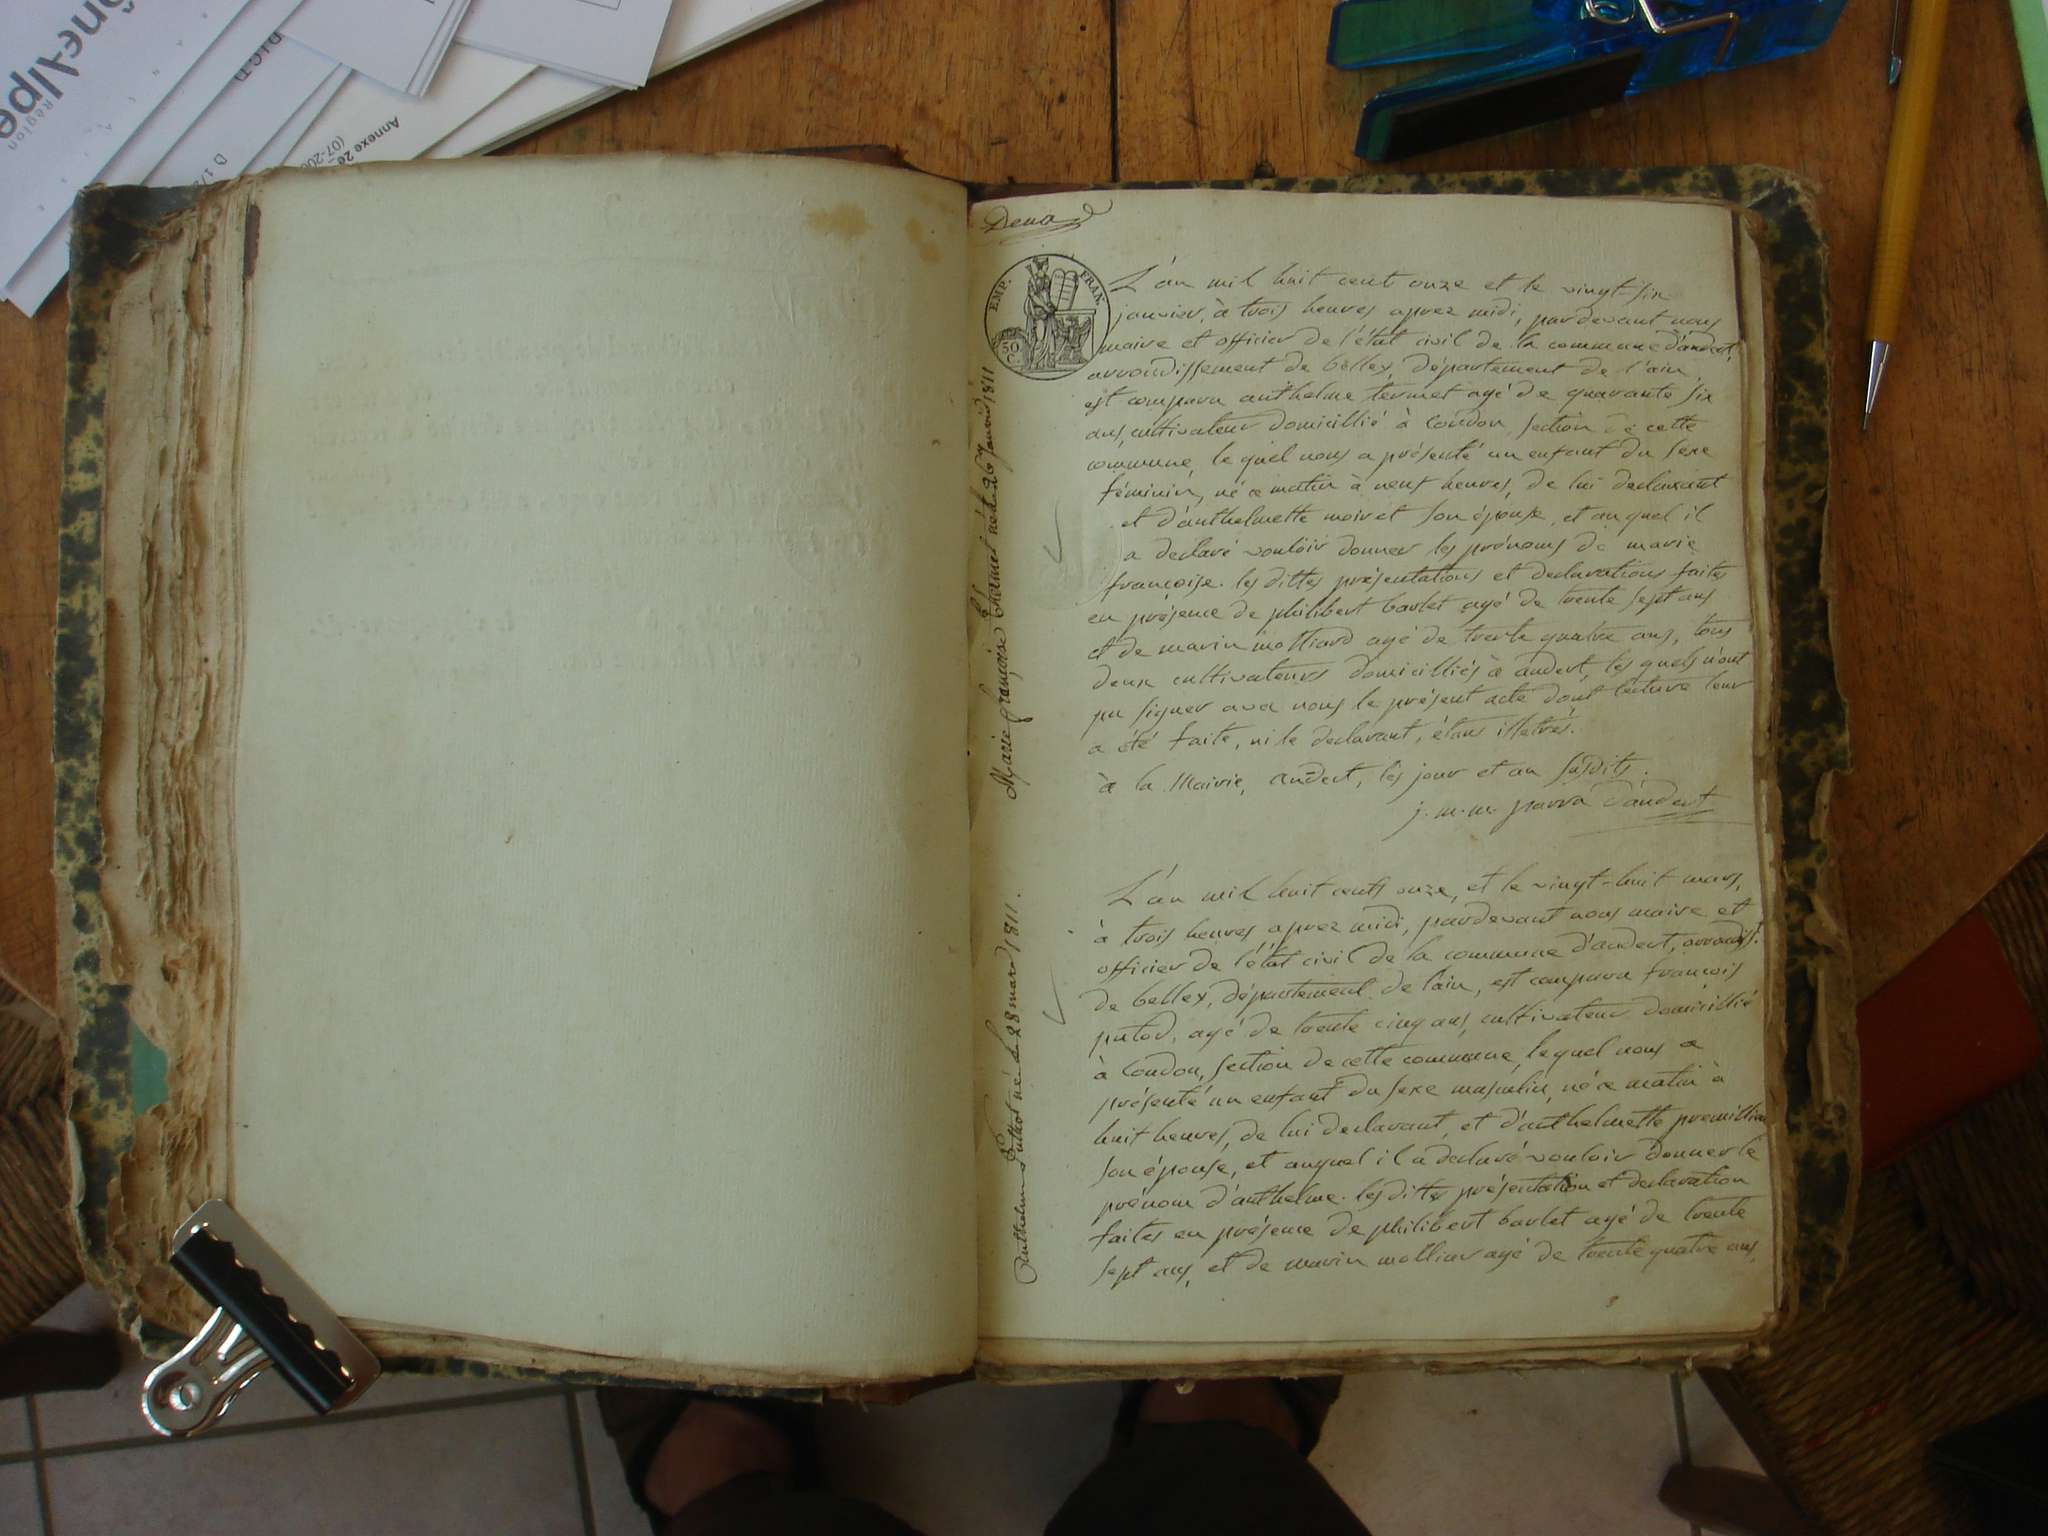 ône-Alpe
Région
D.I.C.T.
Annexe 2e
(07-200
D 17
Deux
EMP. FRAN.
50
C.
L'an mil huit cent onze et le vingt-six
janvier, à trois heures aprez midi, pardevant nous
maire et officier de l'état civil de la commune d'andert,
arrondissement de belley, département de l'ain,
est comparu anthelme termet agé de quarante six
ans, cultivateur domicillié à Condon, section de cette
commune, le quel nous a présenté un enfant du sexe
féminin, né ce matin à neuf heures, de lui declarant
et d'anthelmette moiret son épouse, et au quel il
a declaré vouloir donner les prénoms de marie
françoise. les dittes présentations et declarations faites
en présence de philibert barlet agé de trente sept ans
et de marin molliard agé de trente quatre ans, tous
deux cultivateurs domicilliés à andert, les quels n'ont
pu signer avec nous le présent acte dont lecture leur
a été faite, ni le declarant, étans illetrés.
à la Mairie, andert, les jour et an susdits.
j. m. m. parra d'andert
Marie françoise Thermet née le 26 janvier 1811
L'an mil huit cents onze, et le vingt-huit mars,
à trois heures aprez midi, pardevant nous maire et
officier de l'état civil de la commune d'andert, arrondis.t
de belley, département de l'ain, est comparu françois
putod, agé de trente cinq ans, cultivateur domicillié
à Condon, section de cette commune, lequel nous a
présenté un enfant du sexe masculin, né ce matin à
huit heures, de lui declarant, et d'anthelmette premillieu
son épouse, et auquel il a declaré vouloir donner le
prénom d'anthelme. les dittes présentation et declaration
faites en présence de philibert barlet agé de trente
sept ans, et de marin molliar agé de trente quatre ans,
Anthelme Puthod né le 28 mars 1811.